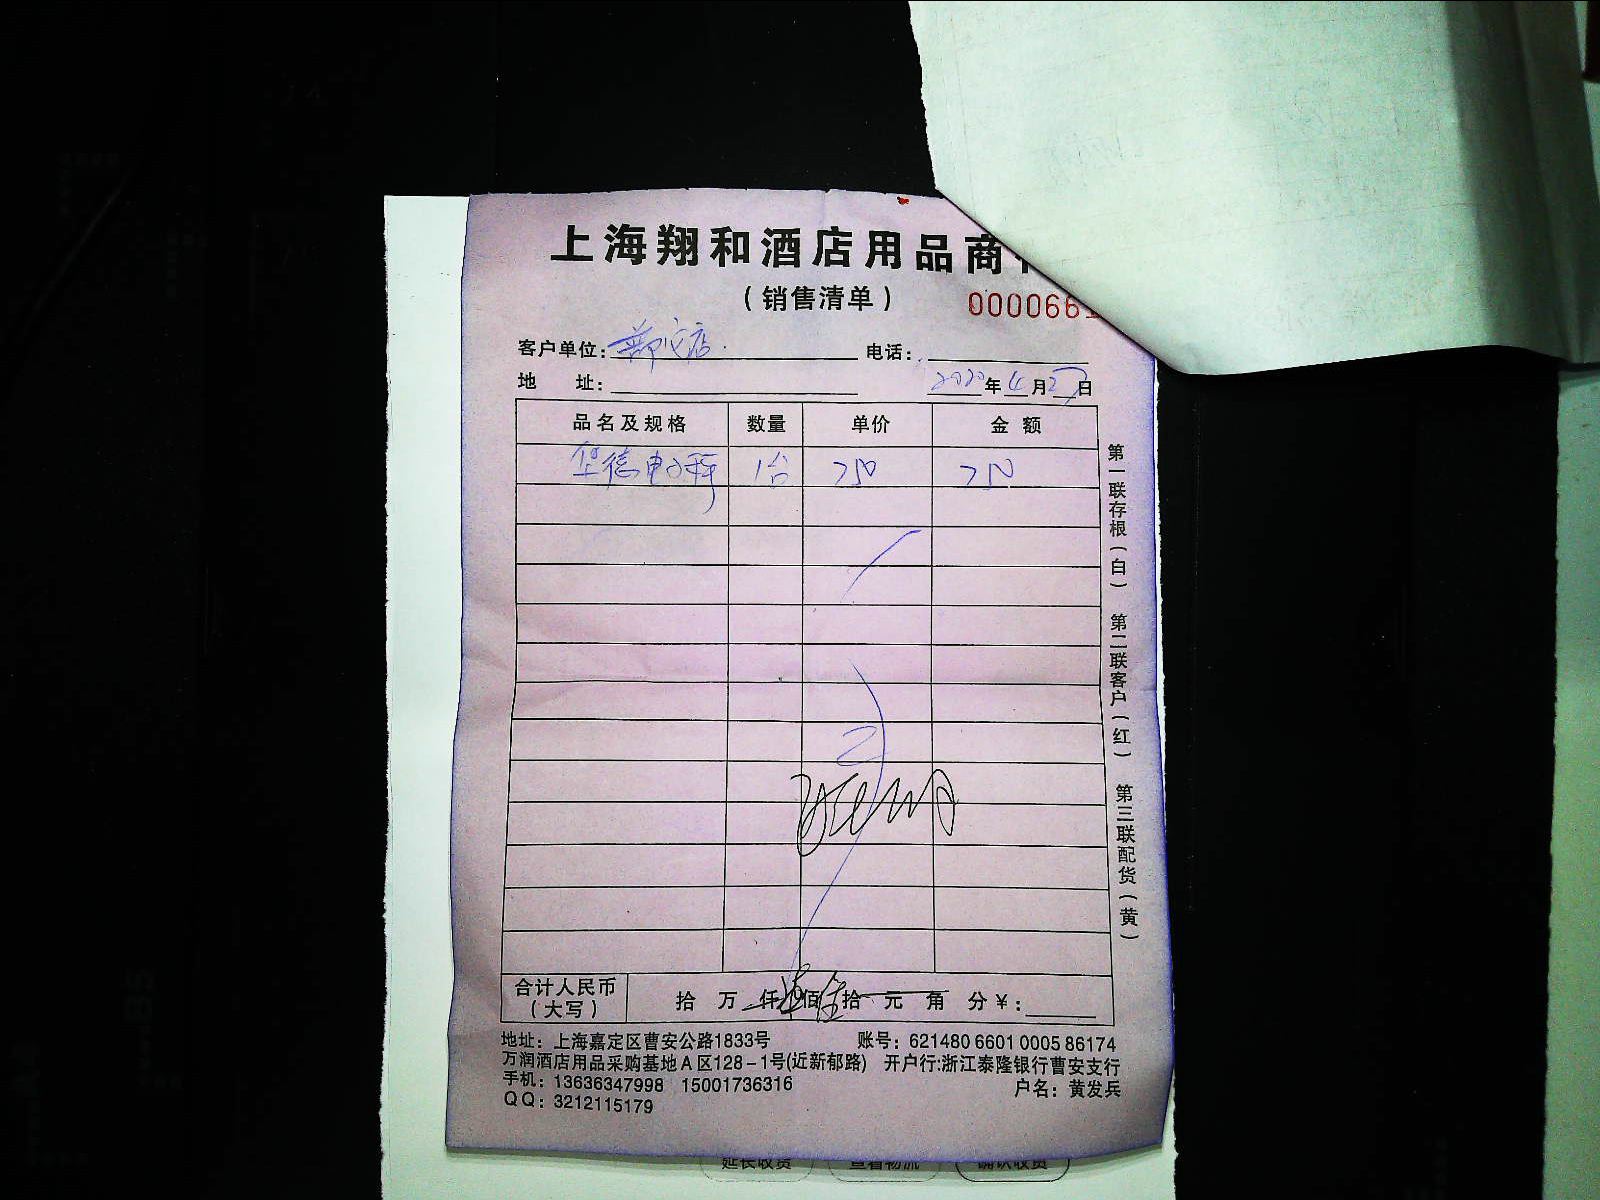 上海翔和酒店用品商
(销售清单)
000066
客户单位: 店 电话:
地 址: 2020年4月27日
品名及规格 数量 单价 金额
华德电子秤 1台 750 750
第一联存根(白) 第二联客户(红) 第三联配货(黄)
合计人民币(大写) 拾 万 仟 佰 拾 元 角 分¥:
地址: 上海嘉定区曹安公路1833号 账号: 621480 6601 0005 86174
万润酒店用品采购基地A区128-1号(近新郁路) 开户行:浙江泰隆银行曹安支行
手机: 13636347998 15001736316 户名: 黄发兵
QQ: 3212115179
延长收货 查看物流 确认收货